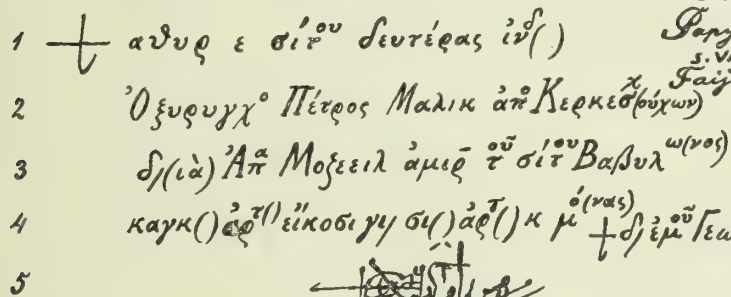 1 ⳨ αθυρ ε σίτου δευτέρας ἰνδ()
2 Ὀξυρυγχο Πέτρος Μαλικ ἀπὸ Κερκεσ(ούχων)
3 δ/(ιὰ) Ἀπα Μοξεειλ ἀμιρ τοῦ σίτου Βαβυλω(νος)
4 καγκ() ἀρτ() εἴκοσι γι/ σι() ἀρτ() κ μό(νας) + δ/ ἐμοῦ Γεω
5